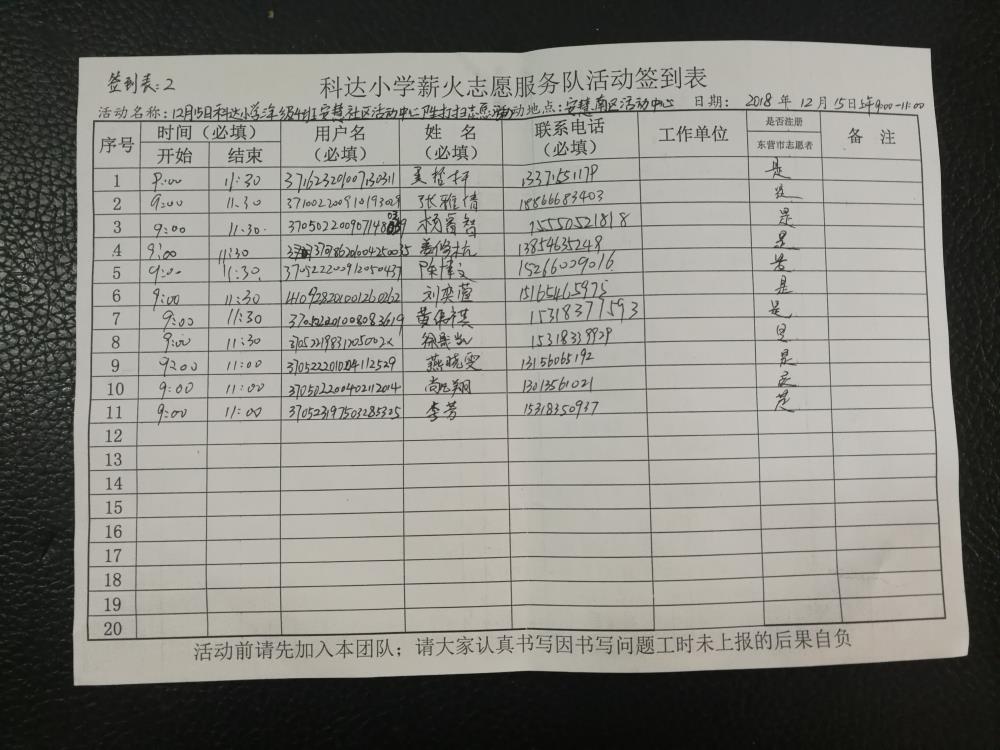 签到表:2
科达小学薪火志愿服务队活动签到表
活动名称:12月15日科达小学 级4班安慧社区活动中心 打扫志愿活动 地点:安慧南区活动中心 日期: 2018 年 12 月 15 日上午9:00-11:00
序号 时间(必填) 开始 结束 用户名(必填) 姓 名(必填) 联系电话(必填) 工作单位 是否注册东营市志愿者 备 注
1 9:00 11:30 371623201007130311 13371551179 是
2 9:00 11:30 张雅倩 18866683403 是
3 9:00 11:30 杨睿智 15550521818 是
4 9:00 11:30 13854635248 是
5 9:00 11:30 370522200912050437 陈博文 15266009016 是
6 9:00 11:30 410928201001260262 刘奕萱 15165465975 是
7 9:00 11:30 370522201008083619 15318377593 是
8 9:00 11:30 15318339929 是
9 9:00 11:00 燕晓雯 13156065192 是
10 9:00 11:00 370502200402112014 尚飞翔 13013561021 是
11 9:00 11:00 370523197503285325 李芳 15318350937 是
12
13
14
15
16
17
18
19
20
活动前请先加入本团队;请大家认真书写因书写问题工时未上报的后果自负